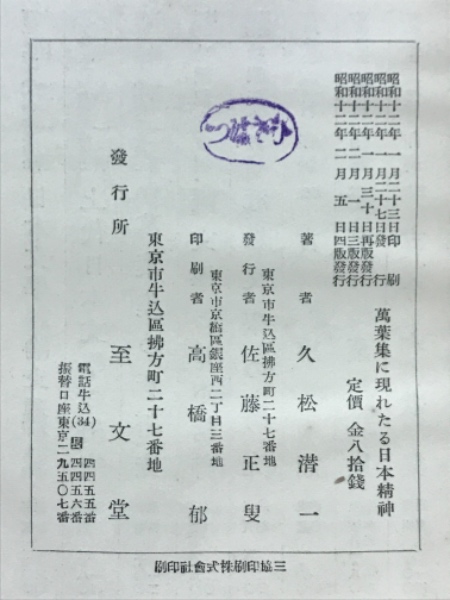 昭和十二年一月二十三日印刷
昭和十二年一月二十七日發行
昭和十二年一月三十日再版發行
昭和十二年二月一日三版發行
昭和十二年二月五日四版發行
萬葉集に現れたる日本精神
定價 金八拾錢
著者 久松潜一
東京市牛込區拂方町二十七番地
發行者 佐藤正叟
東京市京橋區銀座西二丁目三番地
印刷者 高橋郁
東京市牛込區拂方町二十七番地
發行所 至文堂
電話牛込(34)
四四五五番
四四五六番
振替口座東京二九五〇七番